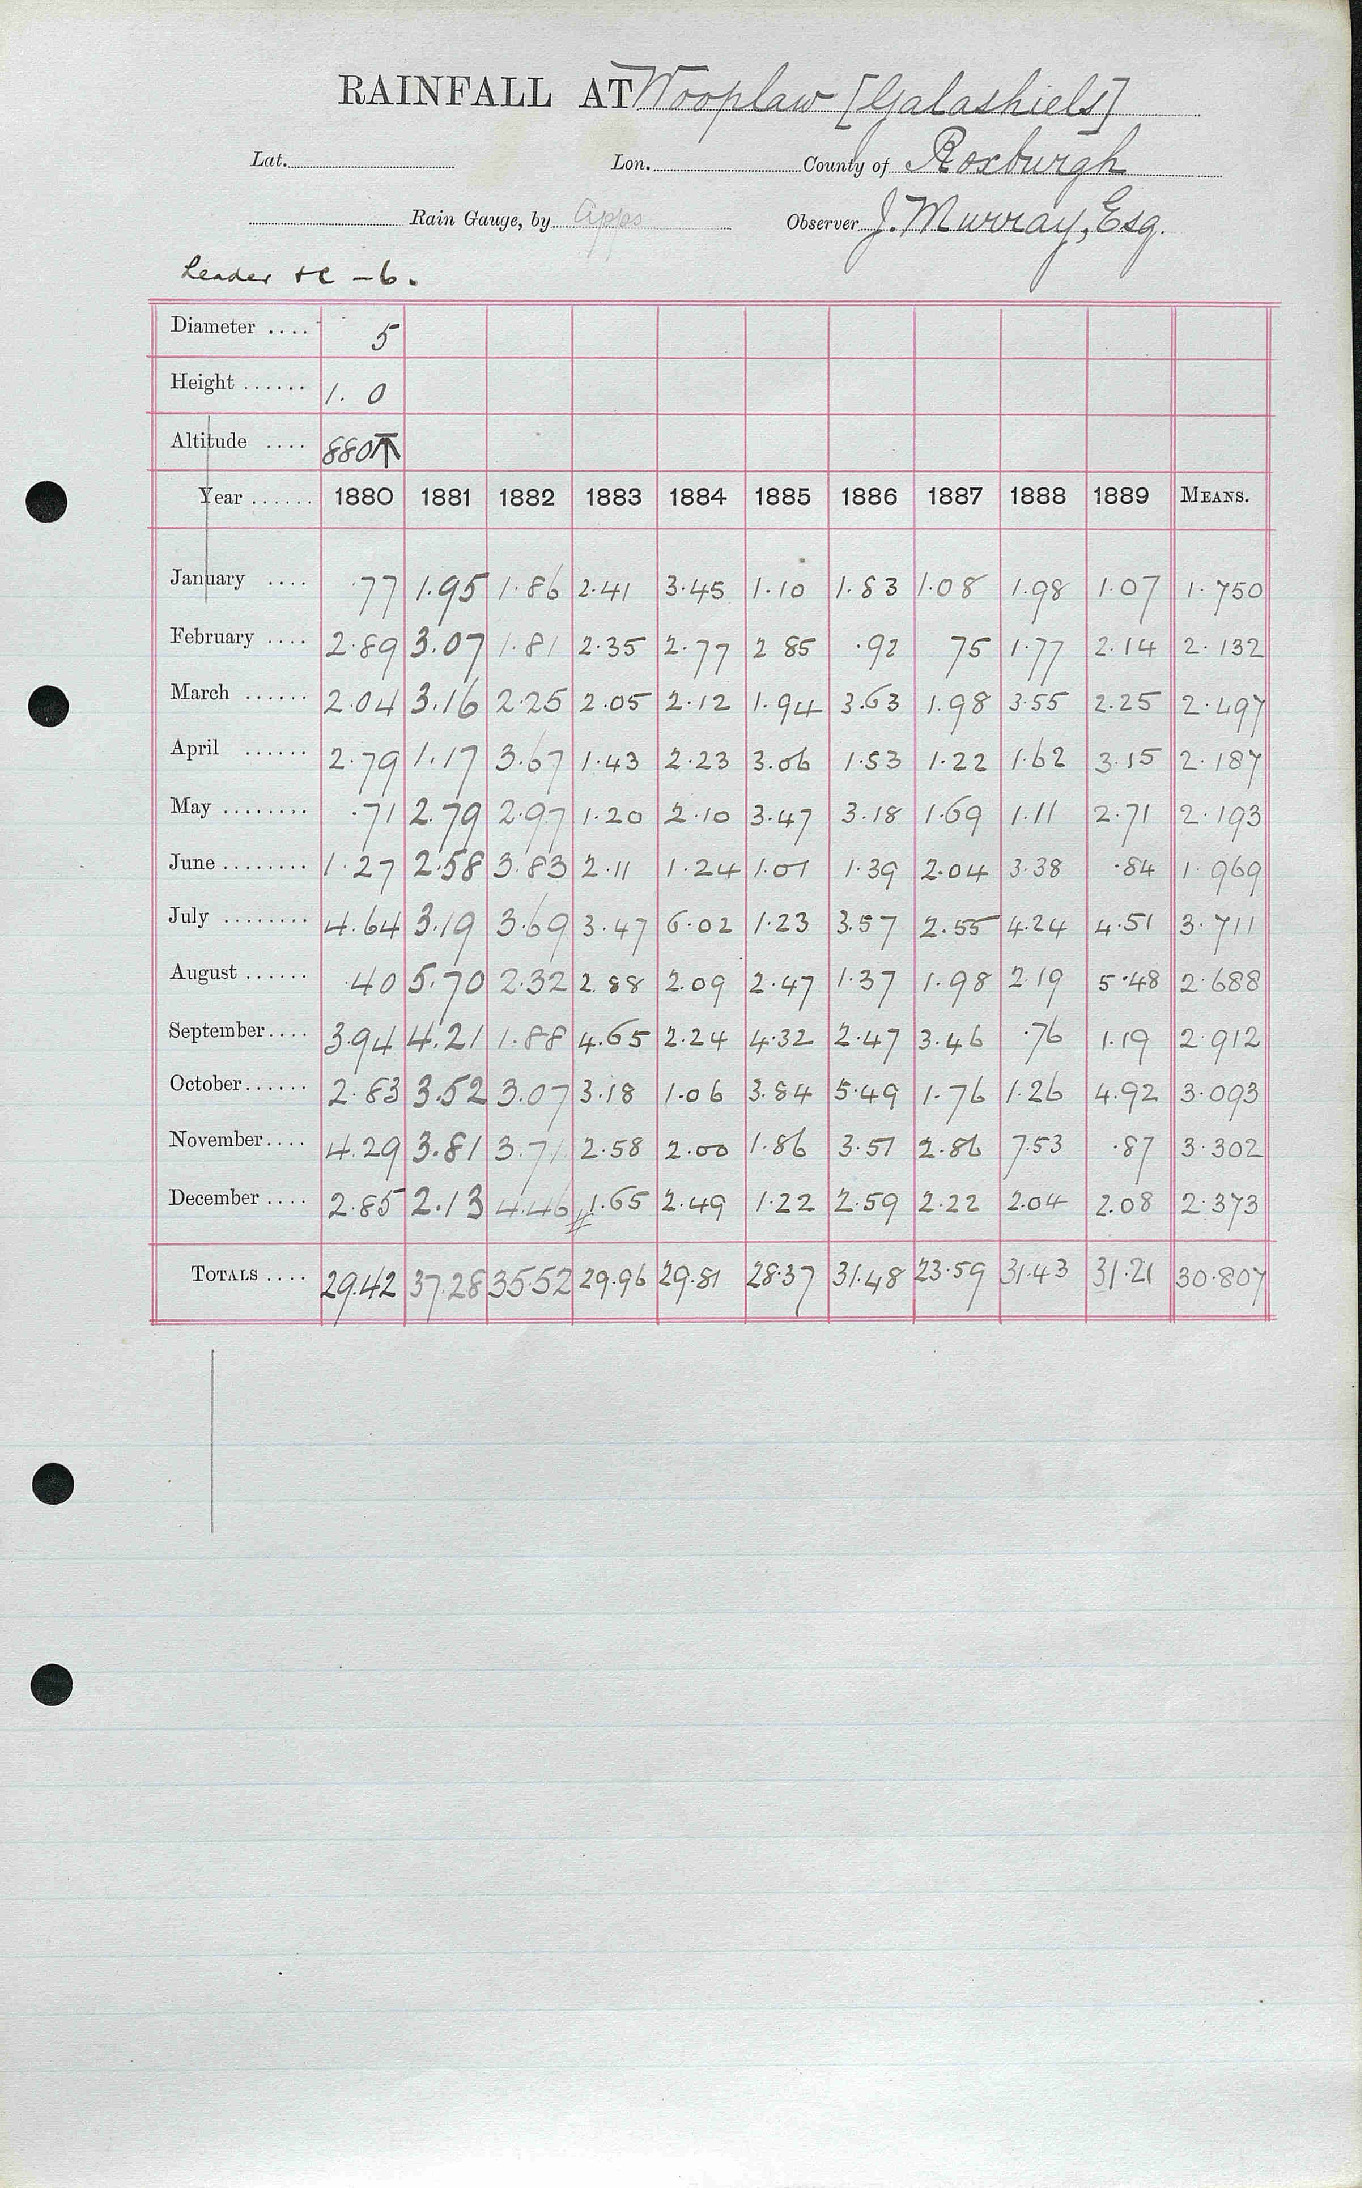 RAINFALL AT Wooplaw [Galashiels]
Lat. Lon. County of Roxburgh
Rain Gauge, by Apps Observer J. Murray, Esq.
Leader &c - 6.
Diameter .... 5
Height ...... 1. 0
Altitude .... 880 ⊼
Year ...... 1880 1881 1882 1883 1884 1885 1886 1887 1888 1889 MEANS.
January .... .77 1.95 1.86 2.41 3.45 1.10 1.83 1.08 1.98 1.07 1.750
February .... 2.89 3.07 1.81 2.35 2.77 2 85 .92 75 1.77 2.14 2.132
March ...... 2.04 3.16 2.25 2.05 2.12 1.94 3.63 1.98 3.55 2.25 2.497
April ...... 2.79 1.17 3.67 1.43 2.23 3.06 1.53 1.22 1.62 3.15 2.187
May ........ .71 2.79 2.97 1.20 2.10 3.47 3.18 1.69 1.11 2.71 2.193
June ........ 1.27 2.58 3.83 2.11 1.24 1.01 1.39 2.04 3.38 .84 1.969
July ........ 4.64 3.19 3.69 3.47 6.02 1.23 3.57 2.55 4.24 4.51 3.711
August ...... .40 5.70 2.32 2.88 2.09 2.47 1.37 1.98 2.19 5.48 2.688
September.... 3.94 4.21 1.88 4.65 2.24 4.32 2.47 3.46 .76 1.19 2.912
October...... 2.83 3.52 3.07 3.18 1.06 3.84 5.49 1.76 1.26 4.92 3.093
November.... 4.29 3.81 3.71 2.58 2.00 1.86 3.51 2.86 7.53 .87 3.302
December .... 2.85 2.13 4.46 1.65 2.49 1.22 2.59 2.22 2.04 2.08 2.373
TOTALS .... 29.42 37.28 35.52 29.96 29.81 28.37 31.48 23.59 31.43 31.21 30.807